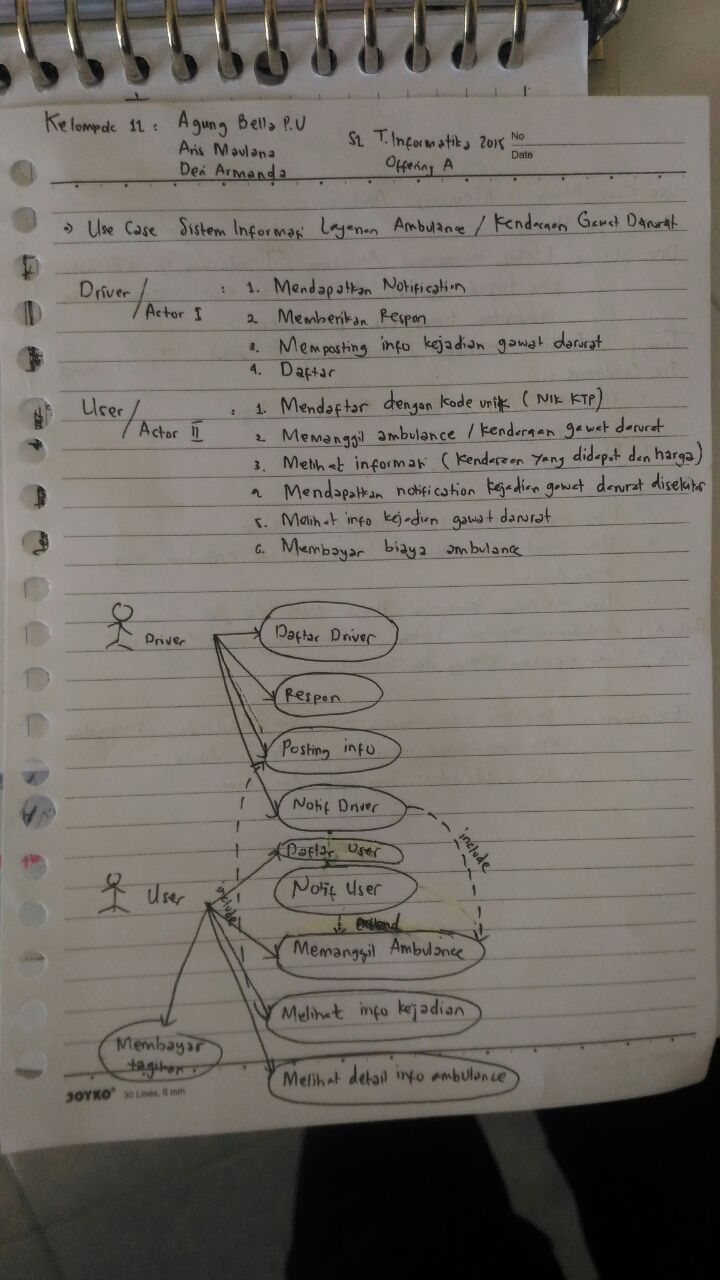 Kelompok 11 : Agung Bella P.U
Aris Maulana
Deri Armanda
S1 T. Informatika 2015
Offering A
No
Date
→ Use Case Sistem Informasi Layanan Ambulance / Kendaraan Gawat Darurat
Driver / Actor I : 1. Mendapatkan Notification
2. Memberikan Respon
3. Memposting info kejadian gawat darurat
4. Daftar
User / Actor II : 1. Mendaftar dengan kode unik ( NIK KTP )
2. Memanggil ambulance / kendaraan gawat darurat
3. Melihat informasi ( kendaraan yang didapat dan harga )
4. Mendapatkan notification kejadian gawat darurat disekitar
5. Melihat info kejadian gawat darurat
6. Membayar biaya ambulance
Driver
Daftar Driver
Respon
Posting info
Notif Driver
include
Daftar User
User
Notif User
include
Memanggil Ambulance
Melihat info kejadian
Membayar
tagihan
Melihat detail info ambulance
JOYKO 30 Lines, 6 mm